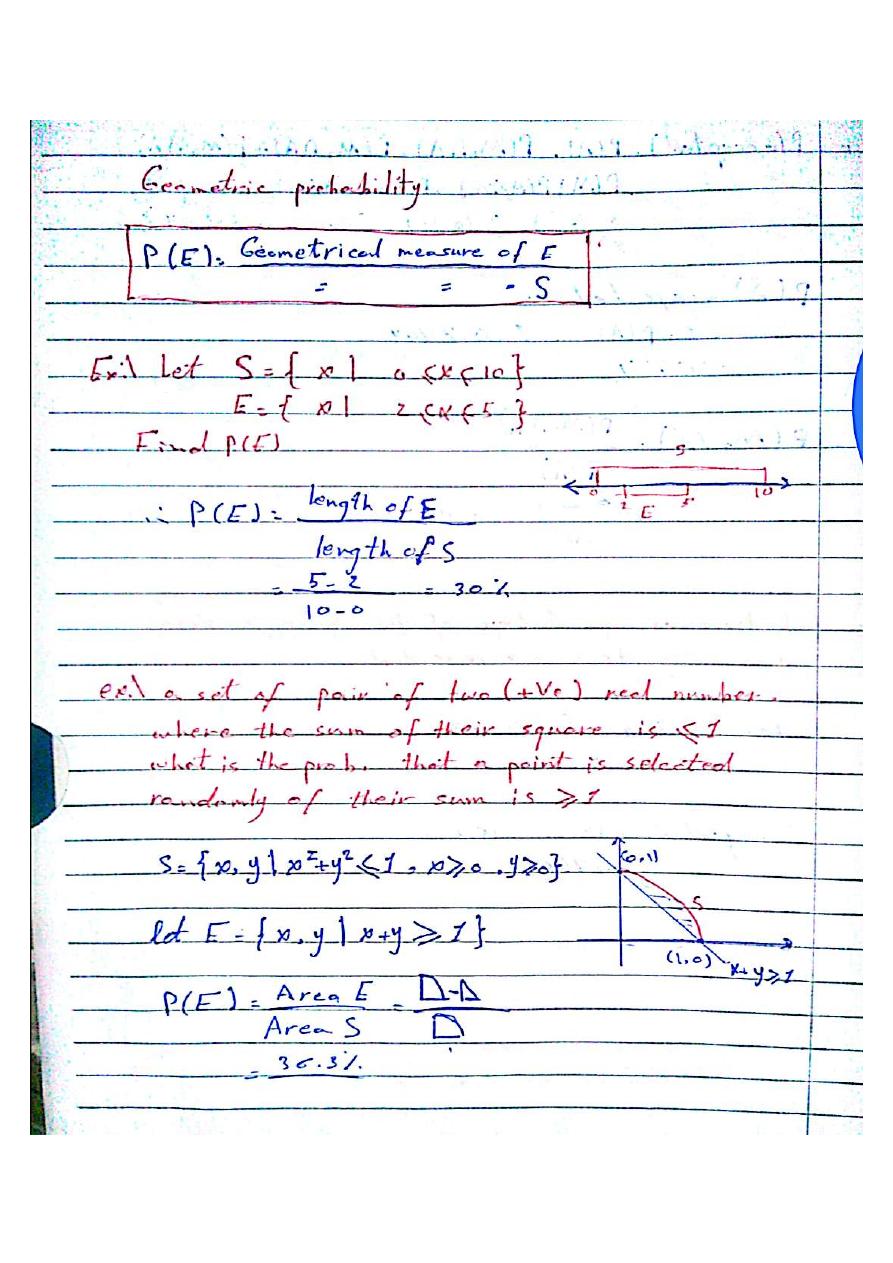 Geometric probability
P(E) = Geometrical measure of E
= = - S
Ex:\ Let S = { x | 0 ≤ x ≤ 10 }
E = { x | 2 ≤ x ≤ 5 }
Find P(E)
S
0 2 5 10
E
∴ P(E) = length of E
length of S
= 5 - 2 = 30 %
10 - 0
ex:\ a set of pair of two (+Ve) real number.
where the sum of their square is ≤ 1
what is the prob. that a point is selected
randomly of their sum is ≥ 1
S = { x, y | x² + y² ≤ 1 , x ≥ 0 , y ≥ 0 }
(0,1)
S
let E = { x, y | x + y ≥ 1 }
(1,0) x + y ≥ 1
P(E) = Area E =
Area S
= 36.3 %